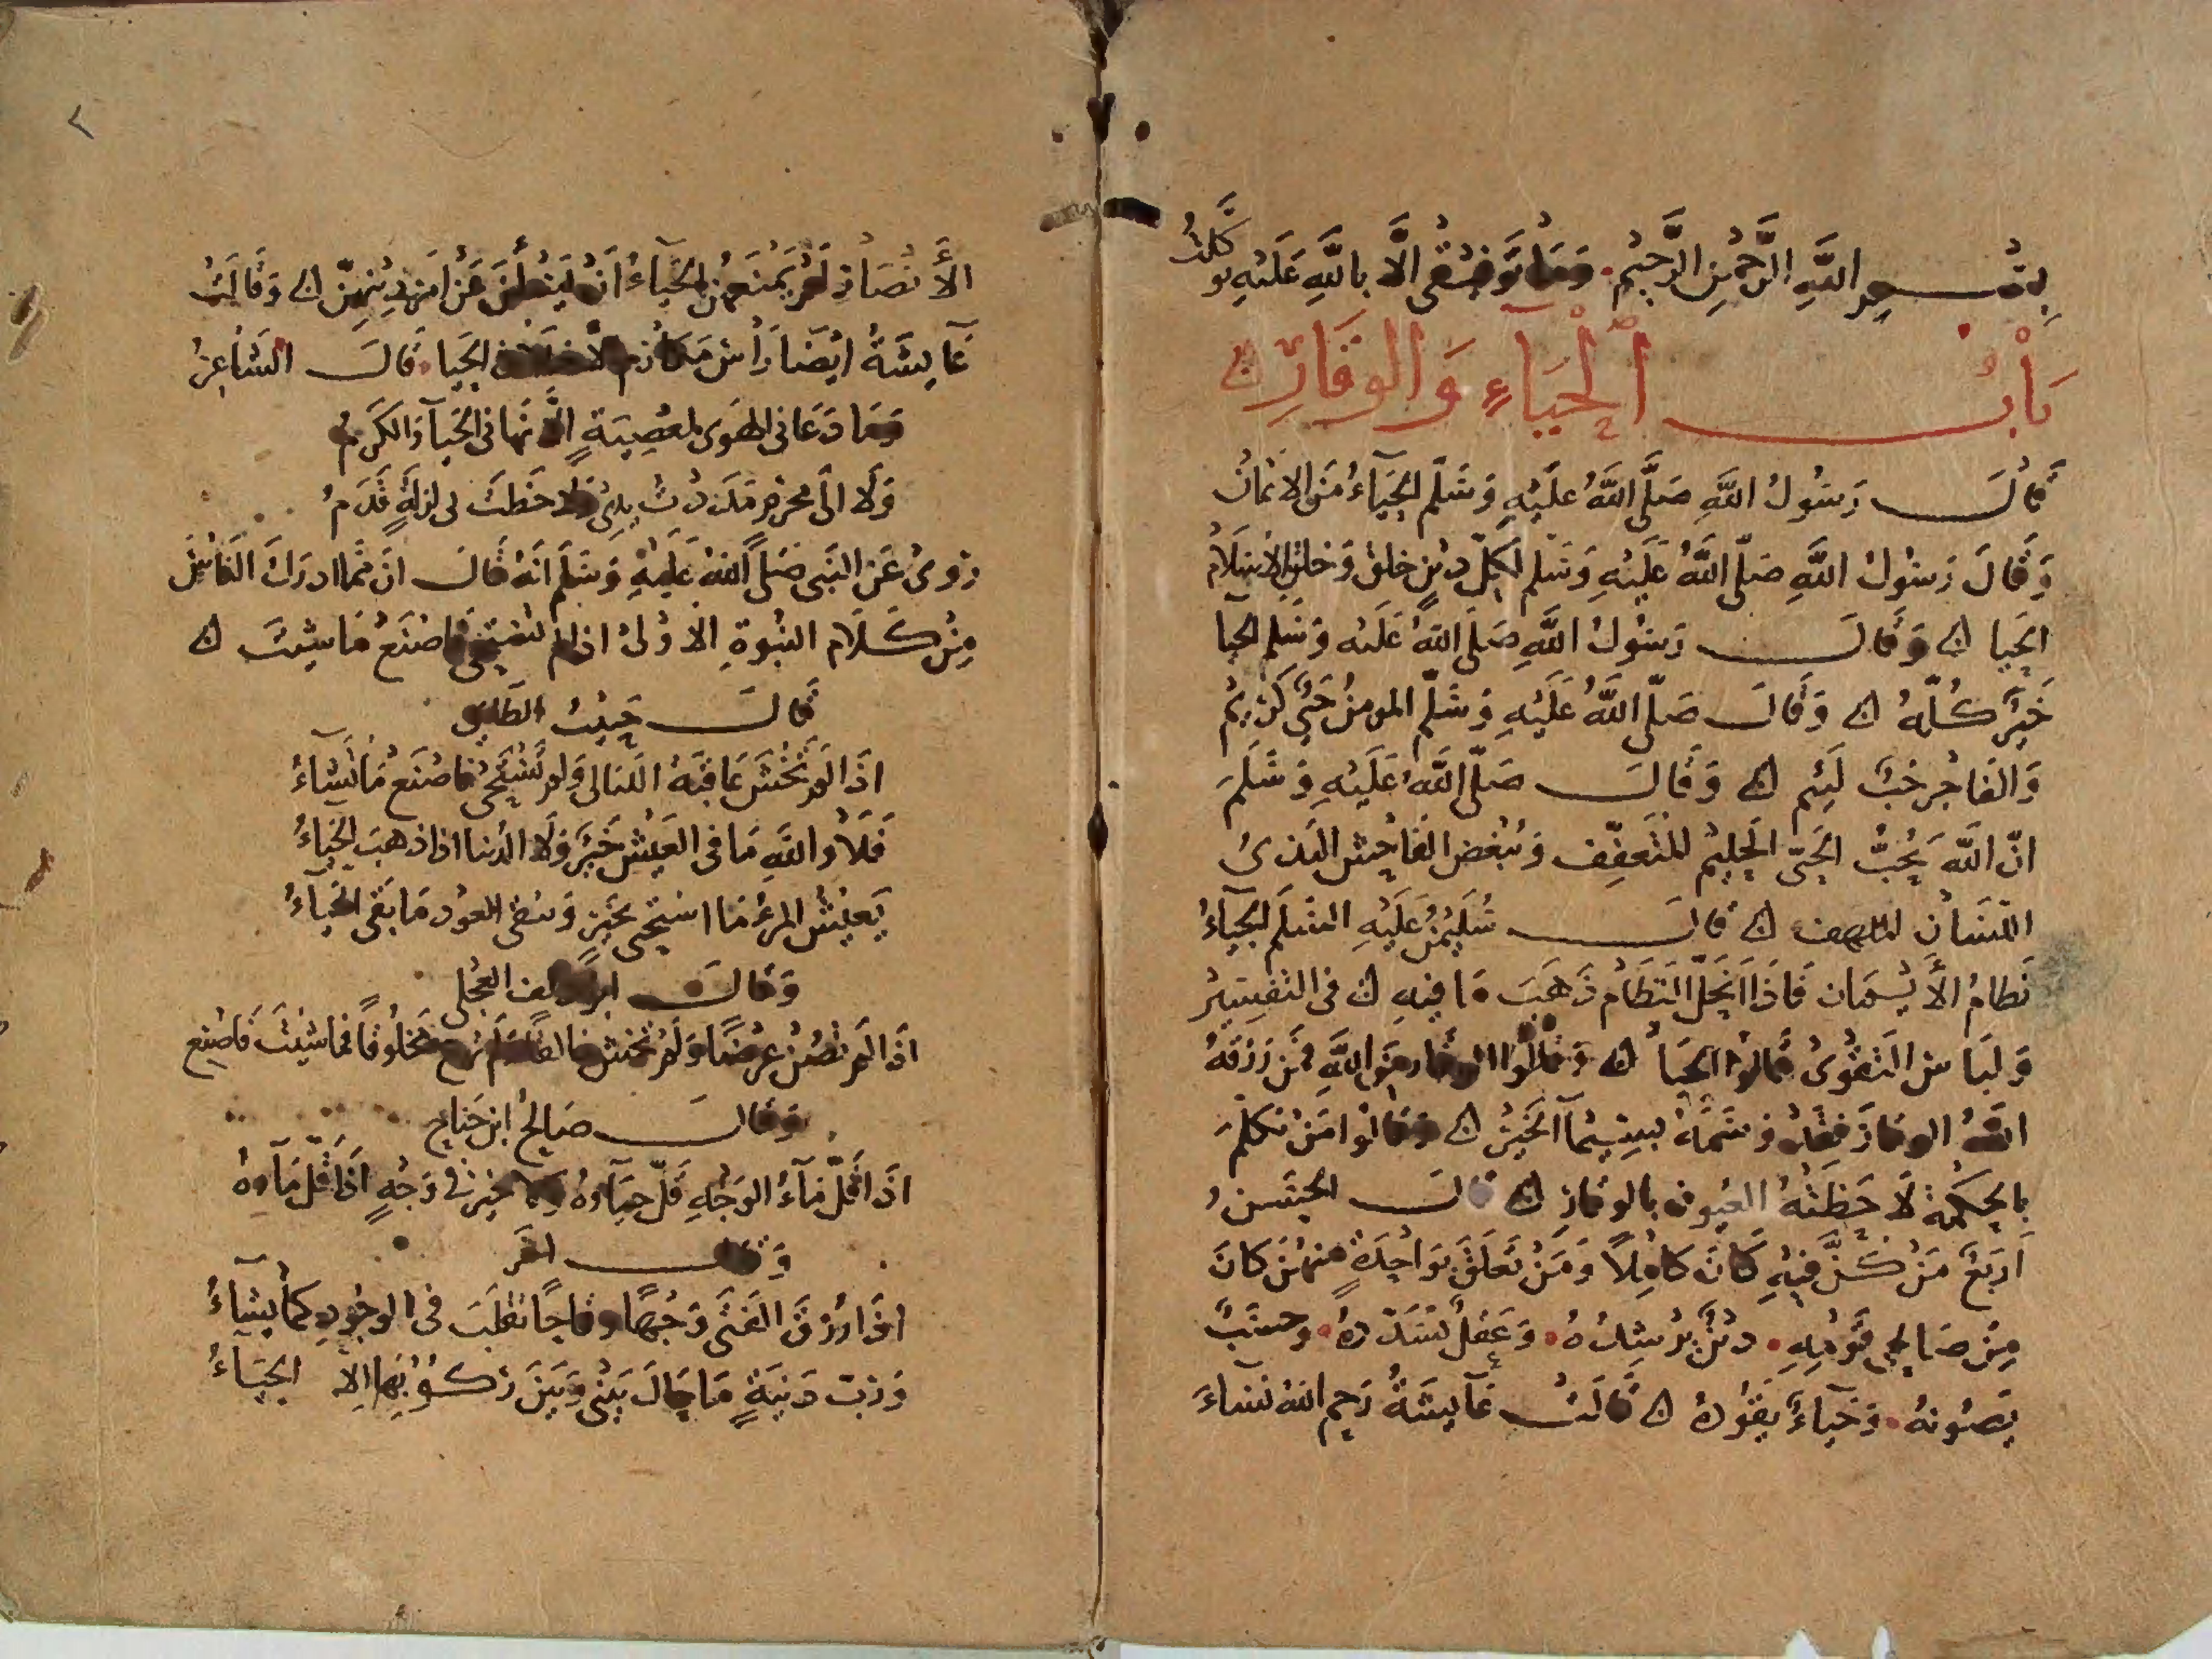 بسم الله الرحمن الرحيم. وما توفيقى الا بالله عليه توكلت
باب الحياء والوقار
قال رسول الله صلى الله عليه وسلم الحياء من الايمان
وقال رسول الله صلى الله عليه وسلم لكل دين خلق وخلق الاسلام
الحيا ۞ وقال رسول الله صلى الله عليه وسلم الحيا
خير كله ۞ وقال صلى الله عليه وسلم المومن حيى كريم
والفاجر خب لئيم ۞ وقال صلى الله عليه وسلم
ان الله يحب الحيى الحليم المتعفف ويبغض الفاحش البذى
السان الملحف ۞ قال سليمن عليه السلم الحياء
نظام الايمان فاذا انحل النظام ذهب ما فيه ۞ فى التفسير
ولباس التقوى قالوا الحيا ۞ وقالوا الوقار من الله فمن رزقه
الله الوقار فقد وسمه بسيما الخير ۞ وقالوا من تكلم
بالحكمة لاحظته العيون بالوقار ۞ قال الحسن
اربع من كن فيه كان كاملا ومن تعلق بواحدة منهن كان
من صالحى قومه. دين يرشده. وعقل يسدده. وحسب
يصونه. وحياء يقوده ۞ قالت عايشة رحم الله نساء
٢
الأنصار لم يمنعهن الحياء ان يسألن عن امر دينهن ۞ وقالت
عايشة ايضا راس مكارم الاخلاق الحيا. قال الشاعر
وما دعانى الهوى لمعصية الا نهانى الحيآ والكرم
ولا الى محرم مددت يدى ولا خطت لى لزلة قدم
روى عن النبى صلى الله عليه وسلم انه قال ان مما ادرك الناس
من كلام النبوة الاولى اذا لم تستحى فاصنع ما شيت ۞
قال حبيب الطايى
اذا لم تخش عاقبة الليالى ولم تستحى فاصنع ما تشاء
فلا والله ما فى العيش خير ولا الدنيا اذا ذهب الحياء
يعيش المرء ما استحيى بخير ويبقى العود ما بقى اللحاء
وقال ابو دلف العجلى
اذا لم تصن عرضا ولم تخش خالقا ولم ترع مخلوقا فما شئت فاصنع
وقال صالح ابن جناح
اذا قل مآء الوجه قل حيآوه ولا خير فى وجه اذا قل مآوه
وقال اخر
اذا رزق الفتى وجها وقاحا تقلب فى الوجوه كما يشاء
ورب دنية ما حال بينى وبين ركوبها الا الحيآء